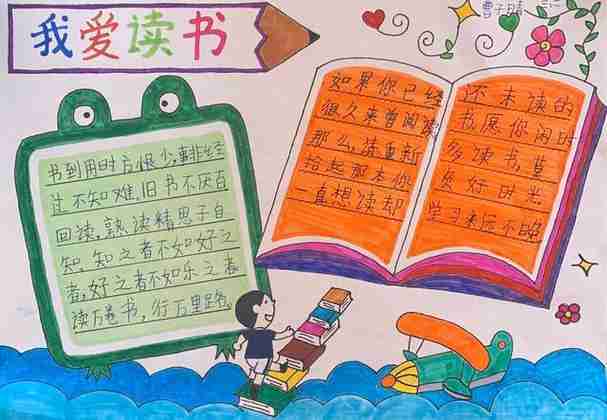 我爱读书
书到用时方恨少,事非经
过不知难,旧书不厌百
回读,熟读精思子自
知,知之者不如好之
者,好之者不如乐之者
读万卷书,行万里路。
如果你已经
很久未曾阅读
那么,请重新
拾起那本你
一直想读却
还未读的
书,愿你闲时
多读书,莫
负好时光
学习永远不晚